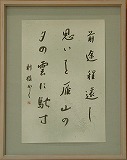 前途程遠し
思いを雁山の
夕の雲に馳す